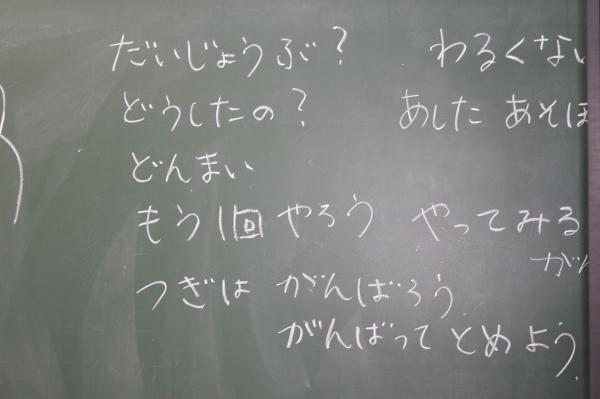 だいじょうぶ? わるくない
どうしたの? あした あそほ
どんまい
もう1回 やろう やってみる
が
つぎは がんばろう
がんばって とめよう